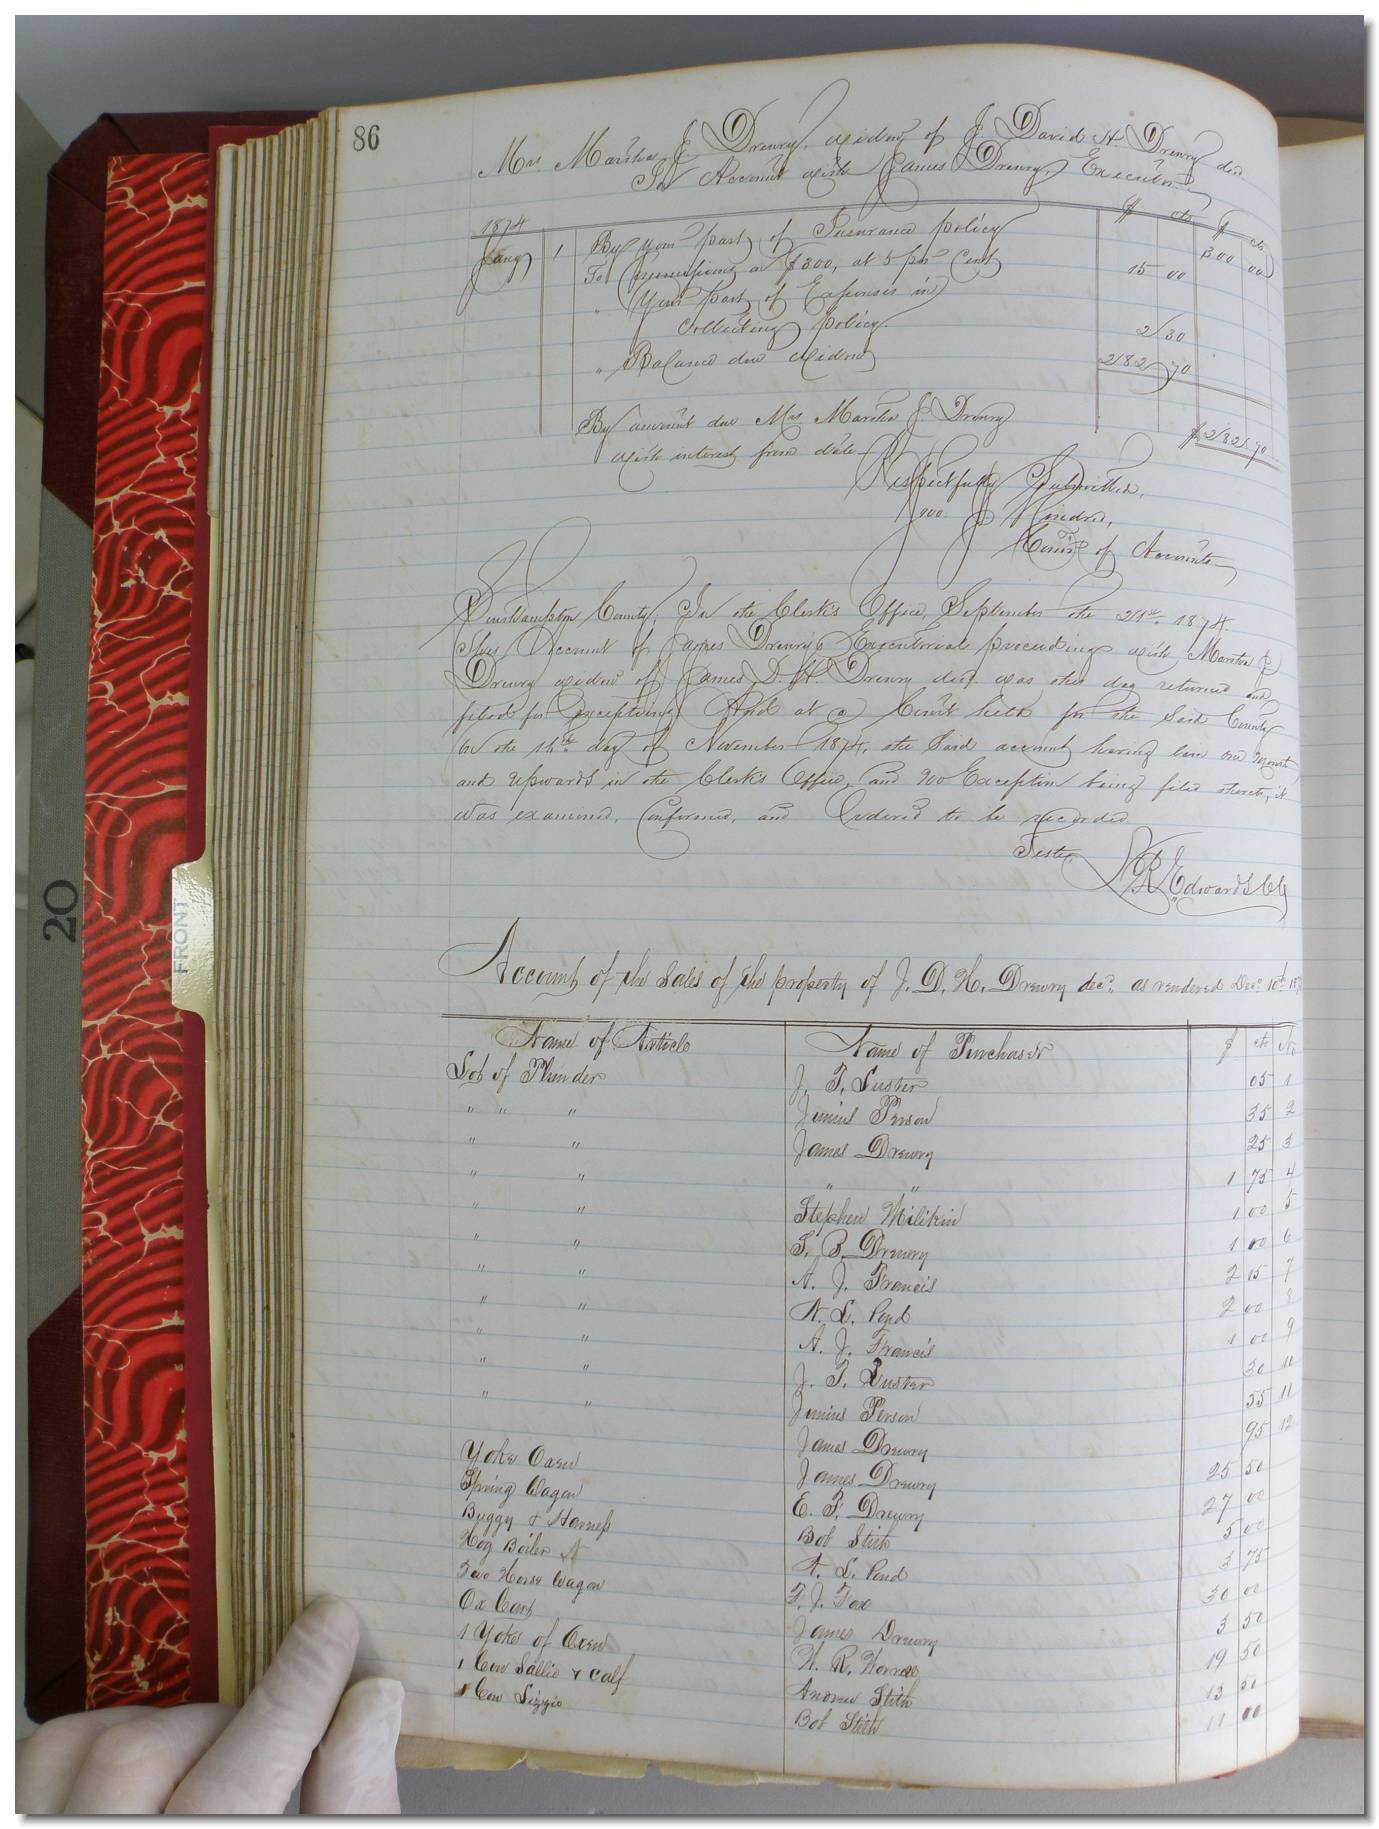 86
Mrs Martha J Drewry, widow of J. David H. Drewry decd
In Account with James Drewry, Executor
$ cts $ cts
1874
Jany 1 By your part of Insurance policy 300 00
To Commissions on $300, at 5 per Cent 15 00
" Your part of Expenses in
Collecting policy. 2 30
" Balance due widow 282 70
By amount due Mrs. Martha J Drewry
with interest from date $282.70
Respectfully Submitted,
Jno. J Kindred,
Comr. of Accounts
Southampton County; In the Clerk's Office, September the 21st. 1874.
This Account of James Drewry's Executorial proceedings with Martha J.
Drewry widow of James D. H. Drewry decd. was this day returned and
filed for exceptions, And at a Court held for the Said County
on the 16th day of November 1874, the Said account having been one month
and upwards in the Clerk's Office, and no Exception being filed thereto, it
was examined, Confirmed, and Ordered to be recorded
Teste, L R Edwards Clk
Account of the Sales of the property of J. D. H. Drewry decd. as rendered Decr 10th
Name of Article Name of Purchaser $ cts No
Lot of Plunder J. T. Luster 05 1
" " " Junius Person 35 2
" " James Drewry 25 3
" " " " 1 75 4
" " Stephen Milikin 1 00 5
" " T. B. Drewry 1 00 6
" " A. J. Francis 2 15 7
" " W. L. Pond 2 00 8
" " A. J. Francis 1 00 9
" " J. T. Luster 30 10
" " Junius Person 55 11
James Drewry 95 12
Yoke Oxen James Drewry 25 50
Spring Wagon E. T. Drewry 27 00
Buggy & Harness Bob Stith 5 00
Hog Boiler W. L. Pond 3 75
Two Horse Wagon T. J. Fox 30 00
Ox Cart James Drewry 3 50
1 Yoke of Oxen W. R. 19 50
1 Cow Sallie & Calf Andrew Stith 13 50
1 Cow Lizzie Bob Stith 11 00
20
FRONT